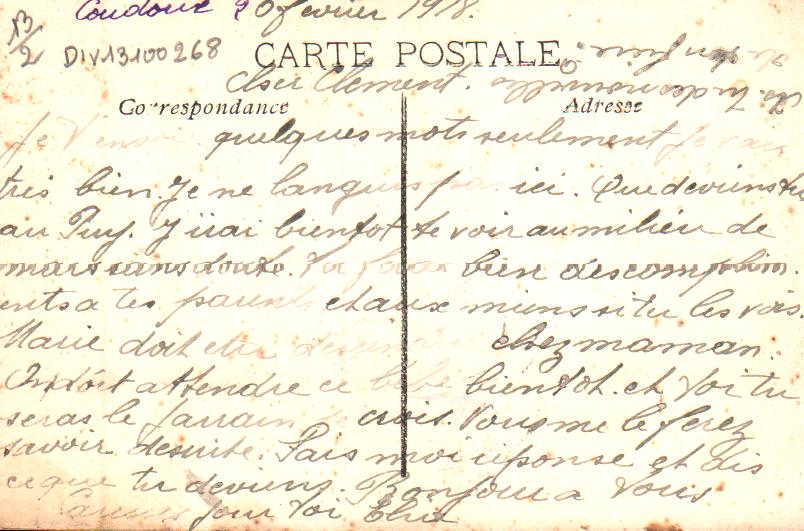 Coudoux 20 fevrier 1918.
B/2
DIV13100268
CARTE POSTALE
Cher Clement.
Correspondance
Adresse
Je quelques mots seulement je vais
très bien. Je ne languis pas ici. Que deviens tu
au Puy. J irai bientot te voir au milieu de
mars sans doute. Tu feras bien des complim
ents a tes parents et aux miens si tu les vois.
Marie doit etre chez maman.
On doit attendre ce bébé bientot. et toi tu
seras le parrain je crois. Vous me le ferez
savoir desuite. Fais moi reponse et dis
ce que tu deviens. Bonjour a vous
pour toi